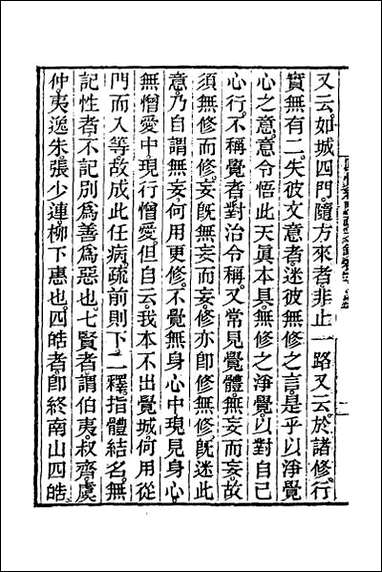 又云。如城四門。隨方來者非止一路又云。於諸修行
實無有二。失彼文意者迷彼無修之言是乎以淨覺
心之意。意令悟此天眞本具。無修之淨覺。以對自己
心行。不稱覺者對治令稱。又常見覺體。無妄而妄。故
須無修而修。旣無妄而妄。修亦卽修無修。旣迷此
意。乃自謂無妄。何用更修。不覺無身心中現見身心。
無憎愛中現行憎愛。但自云我本不出覺城。何用從
門而入等。故成此任病。疏前則下。二釋指體結名。無
記性者不記別爲善爲惡也。七賢者謂伯夷。叔齊。虞
仲。夷逸朱張少連。柳下惠也。四皓者。卽終南山四皓。